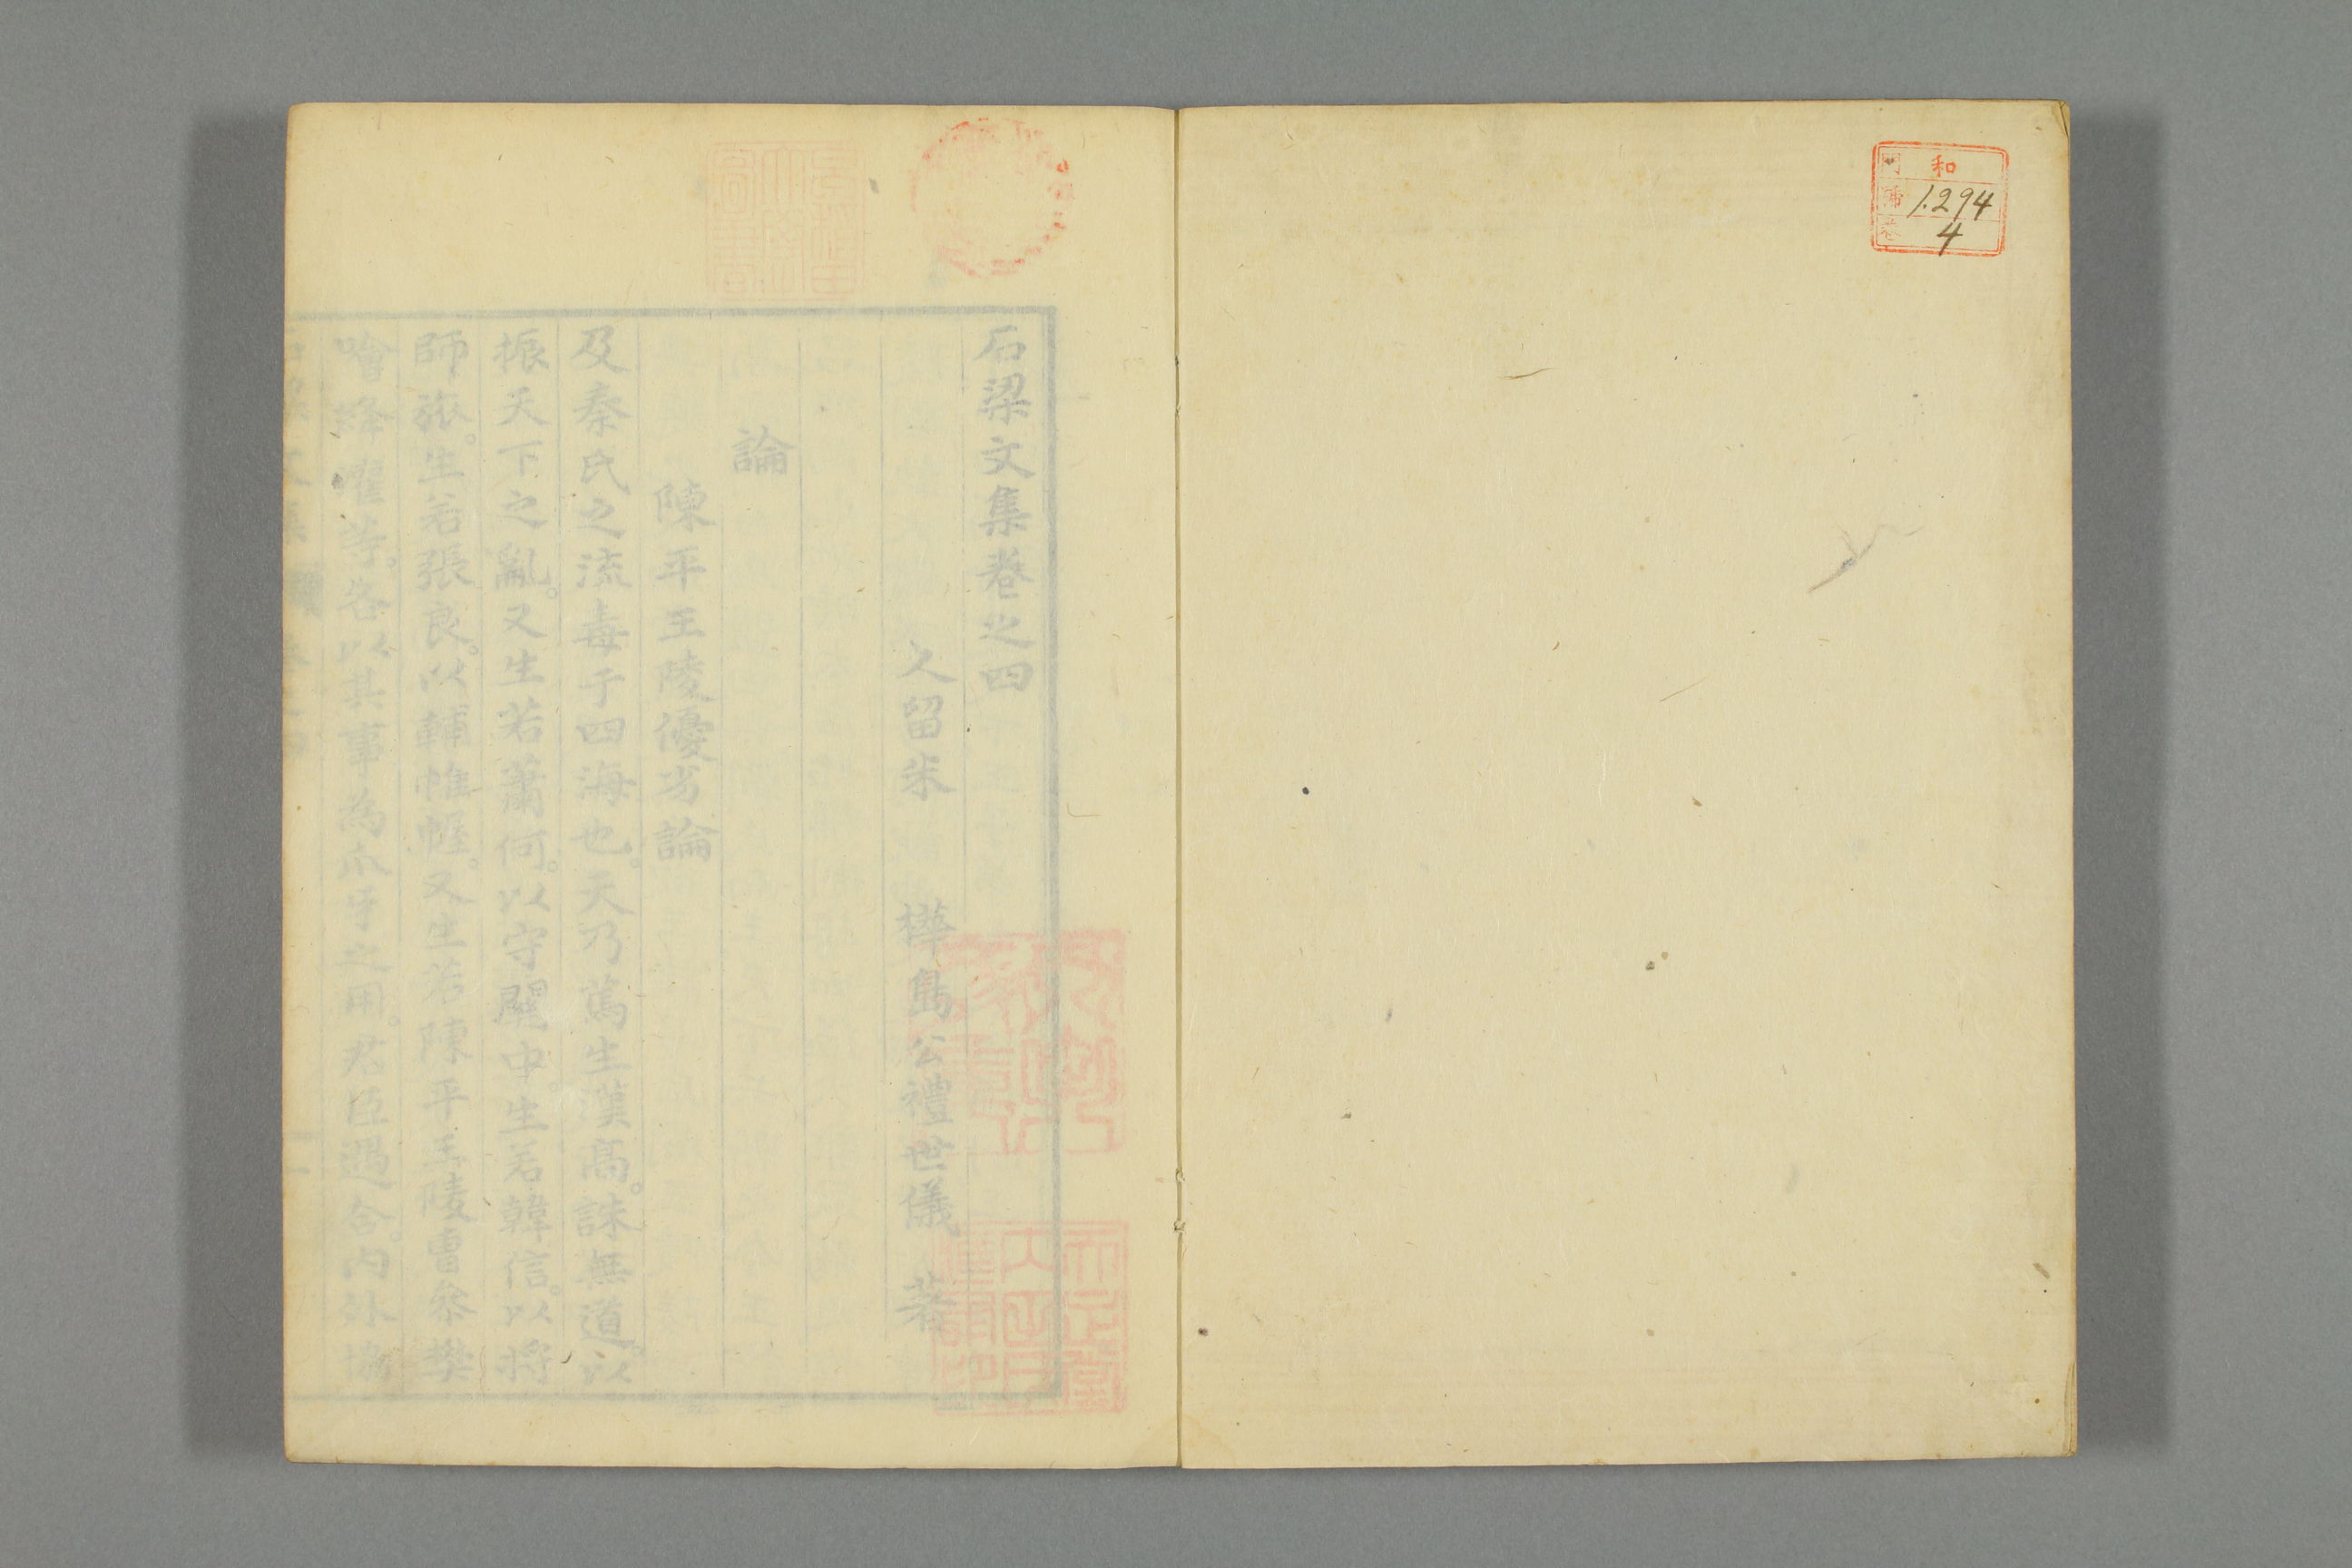 和
門
號 1.294
巻 4
石梁文集巻之四
久留米 樺島公禮世儀 著
論
陳平王陵優劣論
及秦氏之流毒于四海也。天乃篤生漢高。誅無道。以
振天下之亂。又生若蕭何。以守關中。生若韓信。以將
師旅。生若張良。以輔帷幄。又生若陳平王陵曹參樊
噲絳灌等。各以其事為爪牙之用。君臣遇合。内外協